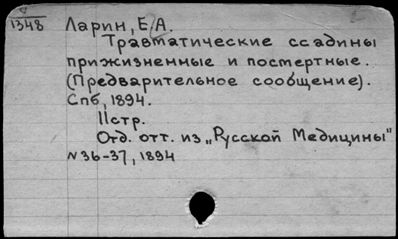 8
1348 Ларин, Е.А.
Травматические ссадины
прижизненные и постертные.
(Предварительное сообщение).
Спб, 1894.
11стр.
Отд. отт. из „Русской Медицины"
N36-37, 1894